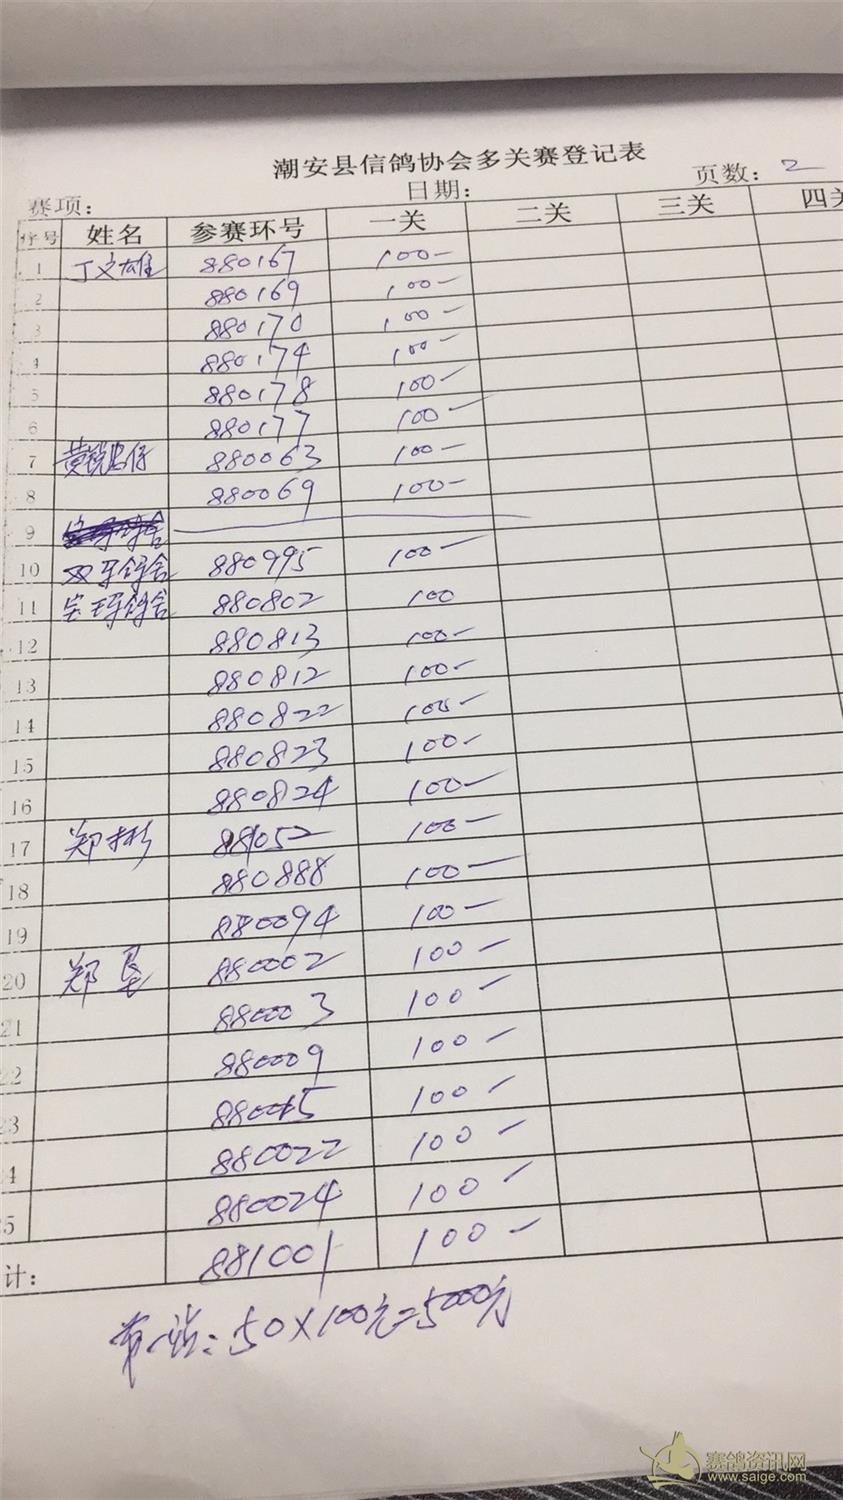 潮安县信鸽协会多关赛登记表
赛项: 日期: 页数: 2
序号 姓名 参赛环号 一关 二关 三关 四关
1 丁文雄 880167 100-
2 880169 100-
3 880170 100-
4 880174 100-
5 880178 100-
6 880177 100-
7 黄锐忠仔 880063 100-
8 880069 100-
9
10 双牙鸽舍 880995 100-
11 宝玉鸽舍 880802 100
12 880813 100-
13 880812 100-
14 880822 100-
15 880823 100-
16 880824 100-
17 郑彬 881052 100-
18 880888 100-
19 880094 100-
20 郑垦 880002 100-
21 880003 100-
22 880009 100-
23 880015 100-
24 880022 100-
25 880024 100-
计: 881001 100-
第一站: 50×100元=5000元
赛鸽资讯网
www.saige.com